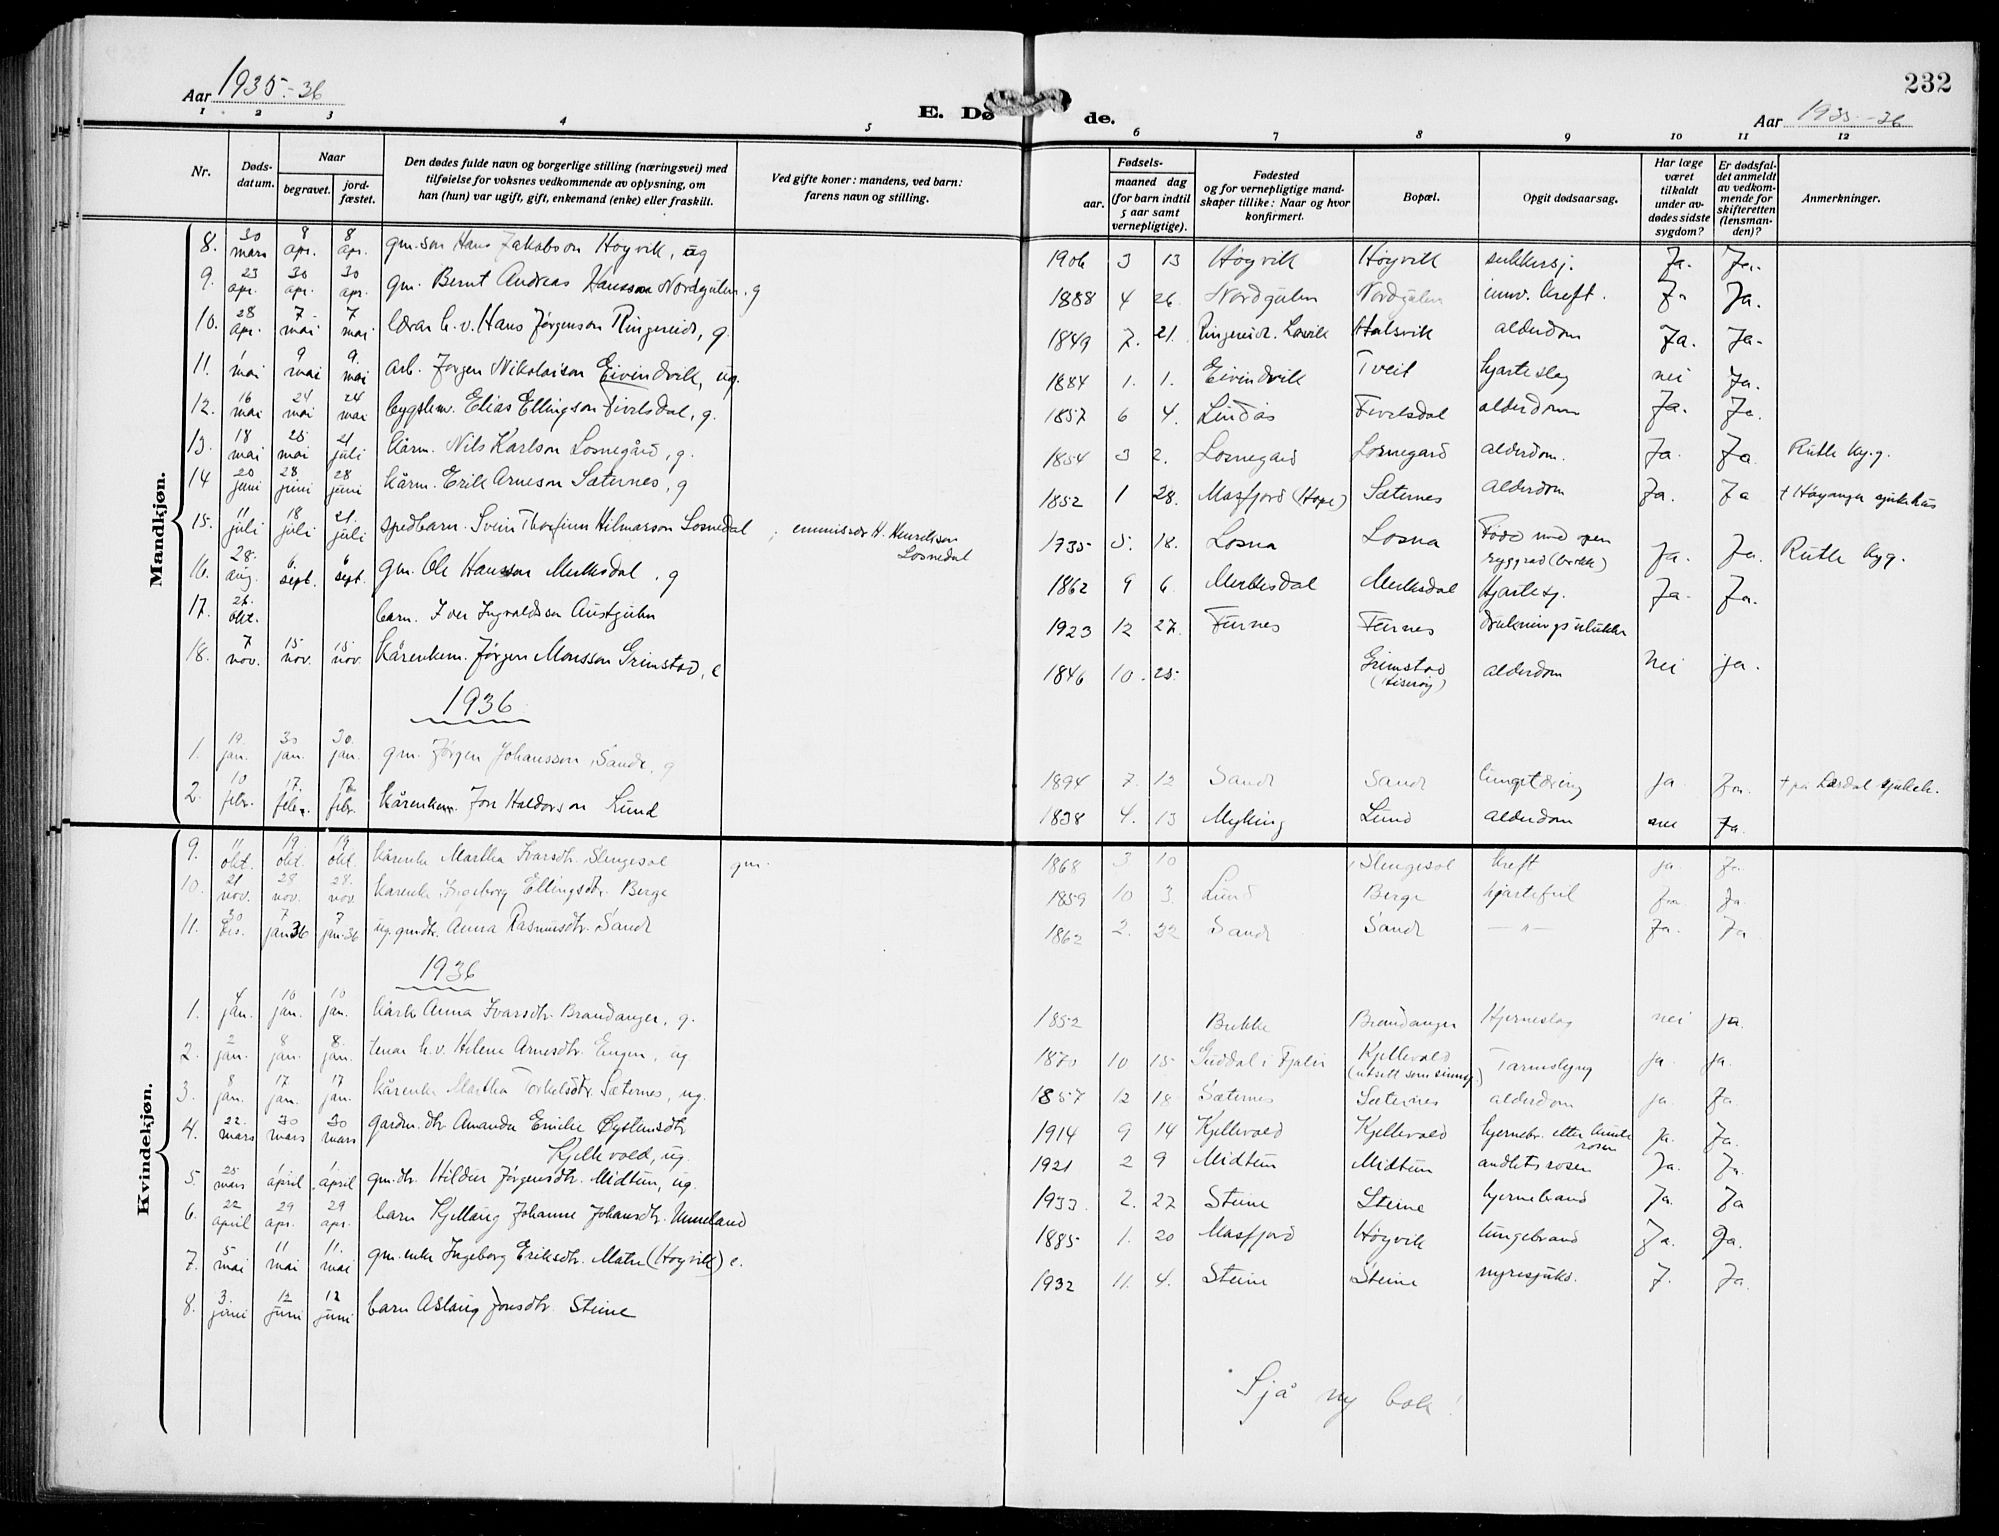 232
Aar 1935-36
E. Døde.
Aar 1935-36
1 2 3 4 5 6 7 8 9 10 11 12
Nr.
Døds-
datum.
Naar
begravet.
jord-
fæstet.
Den dødes fulde navn og borgerlige stilling (næringsvei) med
tilføielse for voksnes vedkommende av oplysning, om
han (hun) var ugift, gift, enkemand (enke) eller fraskilt.
Ved gifte koner: mandens, ved barn:
farens navn og stilling.
Fødsels-
aar.
maaned dag
(for barn indtil
5 aar samt
vernepligtige).
Fødested
og for vernepligtige mand-
skaper tillike: Naar og hvor
konfirmert.
Bopæl.
Opgit dødsaarsag.
Har læge
været
tilkaldt
under av-
dødes sidste
sygdom?
Er dødsfal-
det anmeldt
av vedkom-
mende for
skifteretten
(lensman-
den)?
Anmerkninger.
Mandkjøn.
8. 30 mars 8 apr. 8 apr. gm. son Hans Jakobson Høyvik, ug 1906 3 13 Høyvik Høyvik sukkersj. Ja. Ja.
9. 23 apr. 30 apr. 30 apr. gm. Bernt Andreas Hansson Nordgulen, g 1888 4 26. Nordgulen Nordgulen innv. kreft. Ja.
10. 28 apr. 7 mai 7 mai lærar h.v. Hans Jørgenson Ringereide, g. 1849 7. 21. Ringereide, Lavik Halsvik alderdom Ja. Ja.
11. 1 mai 9 mai 9. mai arb. Jørgen Nikolaison Eivindvik, ug. 1884 1. 1. Eivindvik Tveit hjarteslag nei Ja.
12. 16 mai 24 mai 24 mai bygslem. Elias Ellingson Tivelsdal, g. 1857 6 4. Lindås Tivelsdal alderdom Ja. Ja.
13. 18 mai 25 mai 21 juli kårm. Nils Karlson Losnegård, g. 1854 3 2. Losnegard Losnegard alderdom. Ja. Ja. Rutle kg.g.
14 20 juni 28 juni 28 juni kårm. Erik Arneson Sæternes, g 1852 1 28. Masfjord (Hope) Sæternes alderdom Ja. Ja † Høyanger sjukehus
15. 11 juli 18 juli 21. juli spedbarn. Svein Thorfinn Hilmarson Losnedal, emmissær H. Henrikson
Losnedal 1735 5. 18. Losna Losna Fødd med open
ryggrad (brokk) Ja. Ja. Rutle kyg.
16. 28. aug. 6. sept. 6 sept. gm. Ole Hansson Merkesdal, g 1862 9 6. Merkesdal Merkesdal Hjartesj. Ja. Ja.
17. okt. barn. Iver Ingvaldson Austgulen 1923 12 27. Furnes Furnes drukningsulukke
18. 7 nov. 15 nov. 15 nov. kårenkem. Jørgen Monsson Grimstad, e 1846 10. 25. Grimstad alderdom nei ja.
1936
1. 19 jan. 30 jan. 30. jan. gm. Jørgen Johansson Sande, g 1894 7. 12 Sande Sande lungetæring ja Ja. † på Lærdal sjukeh.
2. 10 febr. 17. febr. 17 febr. kårenkem. Jon Haldorson Lund 1838 4. 13 Myking Lund alderdom nei Ja.
Kvindekjøn.
9. 11 okt. 19 okt. 19 okt. kårenke Martha Ivarsdtr. Slengesol gm. 1868 3 10 Slengesol kreft ja. Ja.
10. 21 nov. 28 nov. 28. nov. kårenke Ingeborg Ellingsdtr. Berge 1859 10 3. Lund Berge hjartefeil Ja Ja.
11. 30 des. 7 jan 36 7 jan. 36 ug. gmdtr. Anna Rasmusdtr. Sande 1862 2. 22 Sande Sande — " — Ja. Ja
1936
1. 4 jan. 10 jan. 10 jan. kårk. Anna Ivarsdtr. Brandanger, g. 1852 Brekke Brandanger Hjerneslag nei ja.
2. 2 jan. 8 jan. 8. jan. tenar h.v. Helene Arnesdtr. Engen, ug 1870 10 15 Guddal i Fjaler Kjellevold Tarmslyng ja. ja.
3. 8 jan. 17 jan. 17 jan. kårenke Martha Torkelsdtr. Sæternes, ug. 1857 12 18 Sæternes Sæternes alderdom ja. Ja.
4. 22 mars 30 mars 30 mars gardm. dtr Amanda Emelie Øystensdtr
Kjellevold, ug. 1914 9 14 Kjellevold Kjellevold hjernebr. etter
rosen Ja. Ja.
5. 25 mars 1 april 1 april gm. dtr. Hildur Jørgensdtr. Midtun, ug. 1921 2 9 Midtun Midtun andletsrosen Ja. Ja.
6. 22 april 29 apr. 29 apr. barn Kjellaug Johanne Johansdtr. Unneland 1933 2. 27 Steine Steine hjernebrand Ja. Ja
7. 5 mai 11 mai 11. mai gm. enke Ingeborg Eriksdtr. Matre (Høyvik) e. 1885 1. 20 Masfjord Høyvik lungebrand Ja. Ja.
8. 3. juni 12 juni 12 juni barn Aslaug Jonsdtr. Steine 1932 11. 4. Steine Steine nyresjuke. J. Ja.
Sjå ny bok!